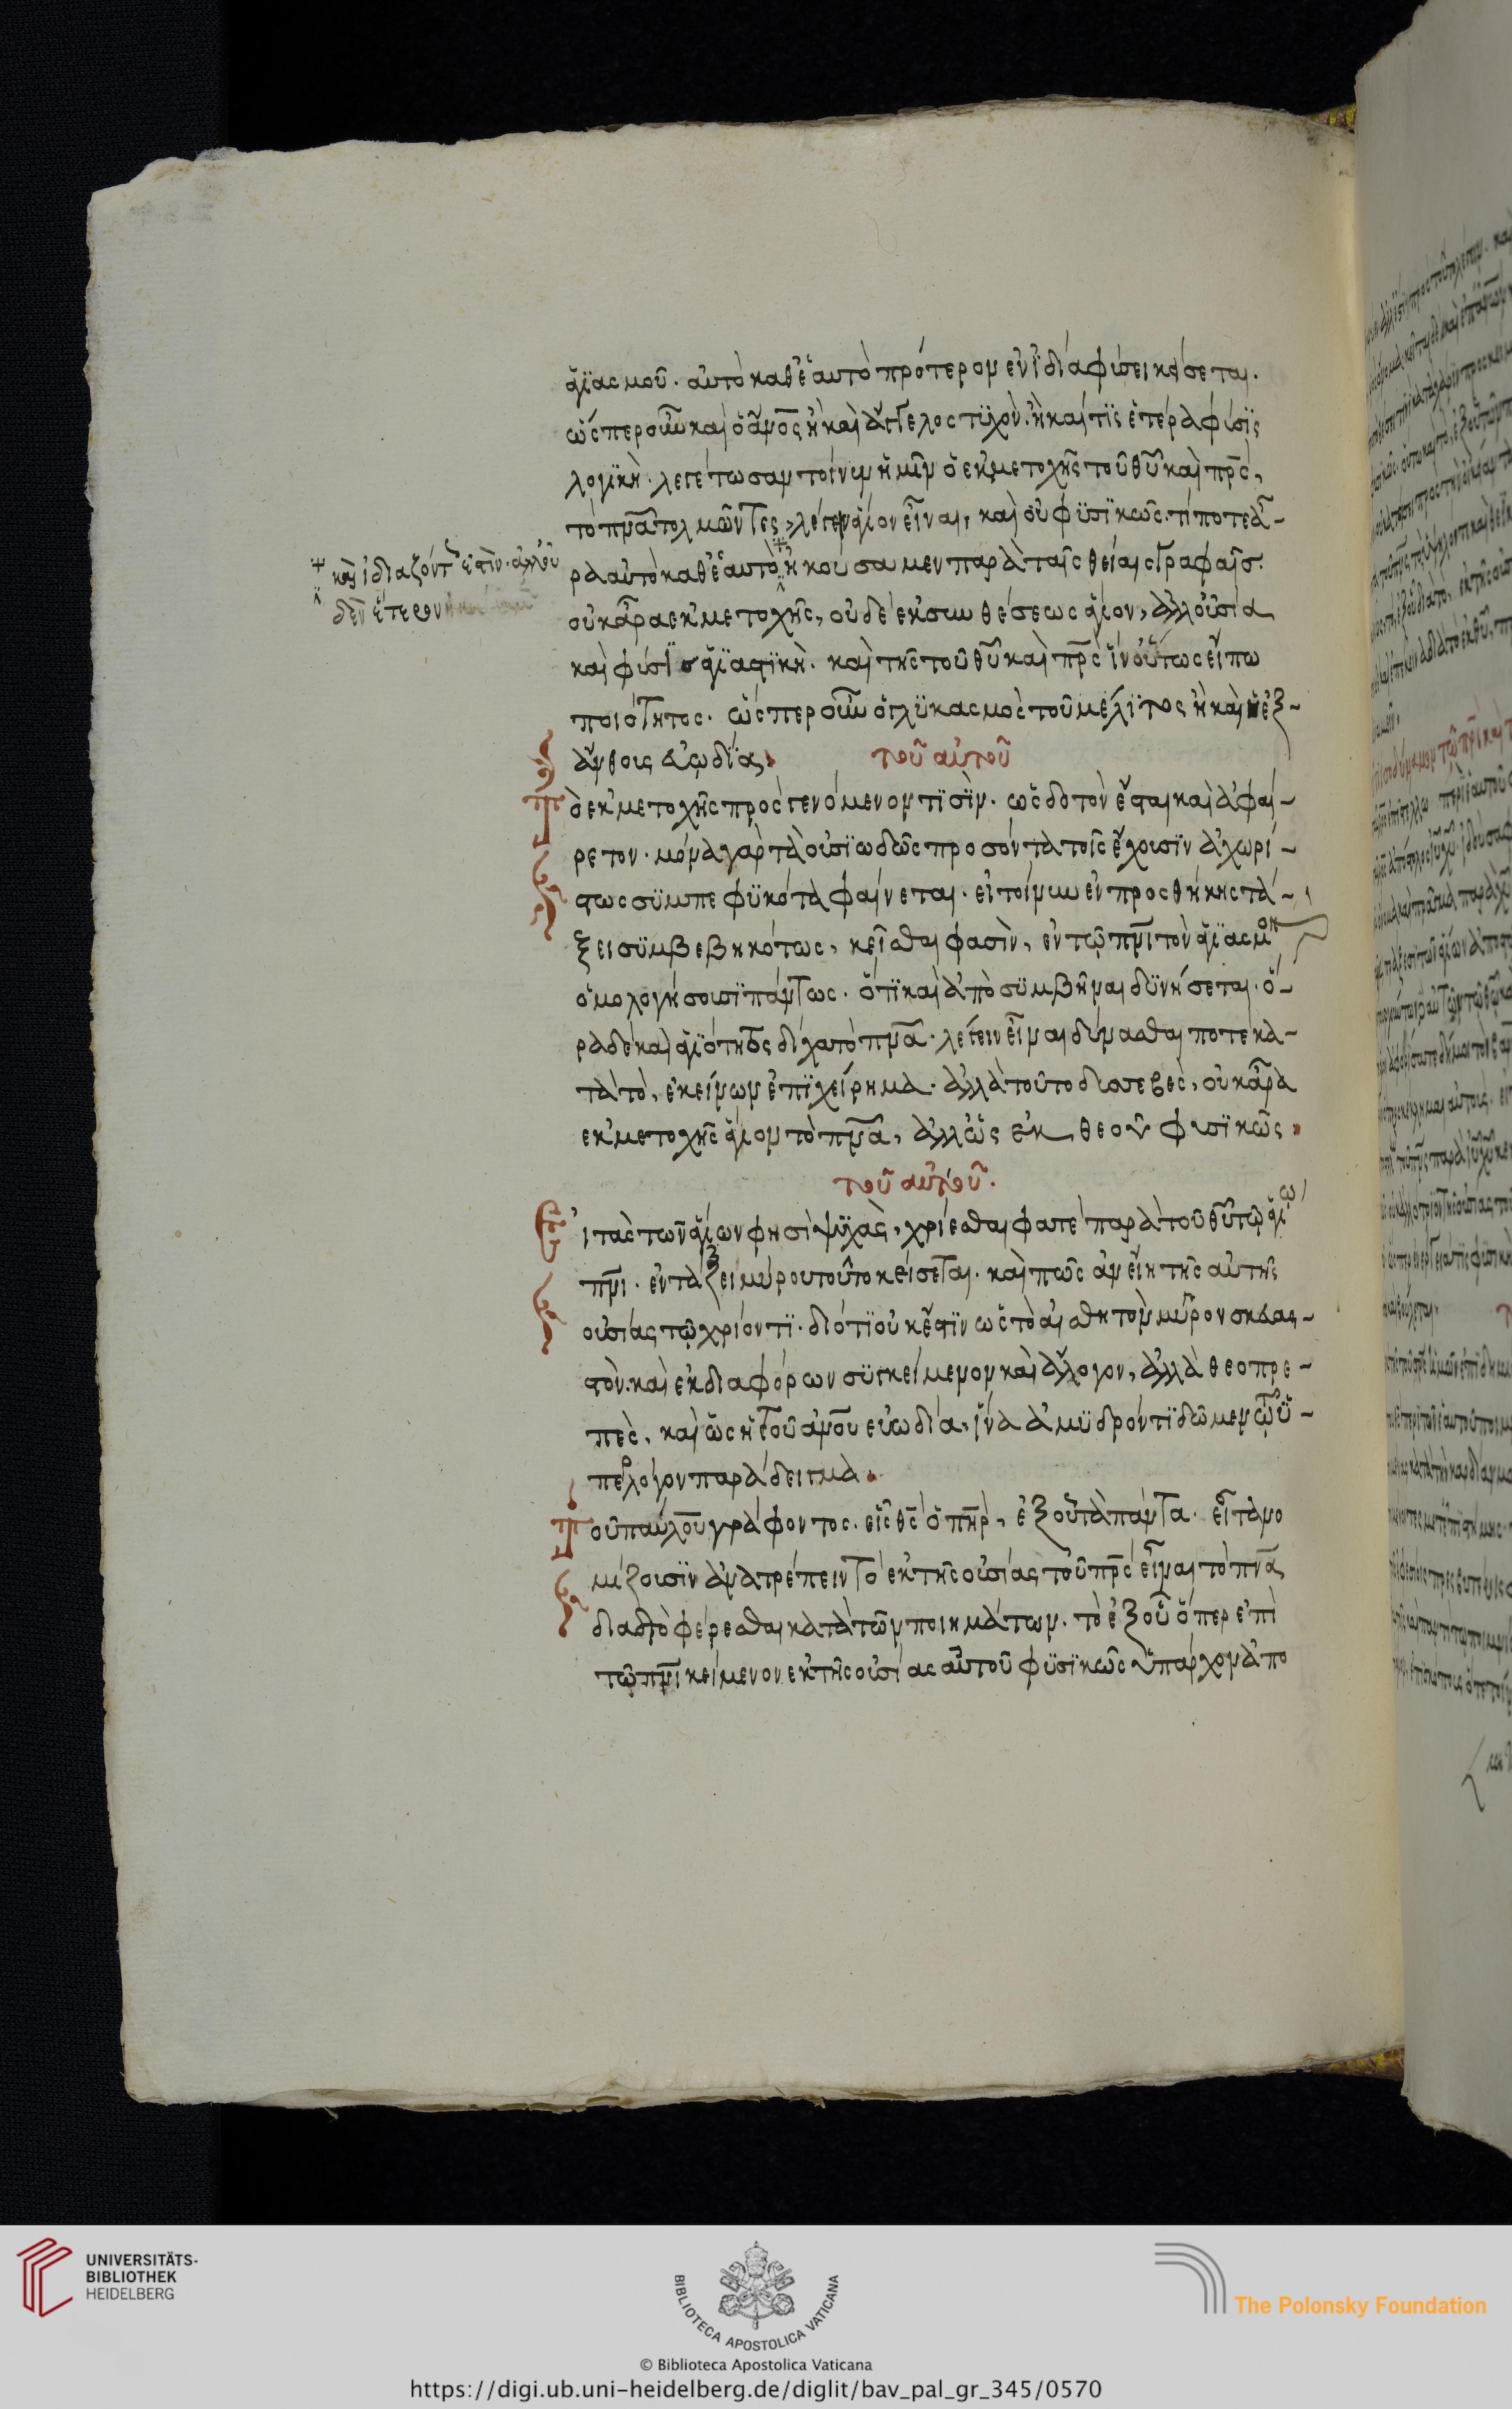 ἁγϊασμοῦ. αὐτὸ καθ' ἑαυτὸ πρότερον ἐν ἰδία φύσει κείσεται.
ὥσπερ οὖν καὶ ὁ ἄνος ἢ καὶ ἄγγελος τϋχὸν. ἢ καί τϊς ἑτέρα φύσϊς
λογϊκὴ. λεγέτωσαν τοίνυν ἡμῖν ὁ ἐκ μετοχῆς τοῦ θῦ καὶ πρς,
τὸ πνα τολμῶντες λέγειν ἅγιον εἶναι, καὶ οὐ φϋσϊκῶς. τί ποτε ἄ-
ρα αὐτὸ καθ' ἑαυτὸ ἠκούσαμεν παρὰ ταῖς θείαις γραφαῖς.
καὶ ἰδιαζόντως ἐστὶν. ἀλλ' οὐ
δὲν ἕτερον
οὐκ ἄρα ἐκ μετοχῆς, οὐδὲ ἐκ συνθέσεως ἅγιον, ἀλλ' οὐσία
καὶ φύσϊς ἁγϊαστϊκὴ. καὶ τῆς τοῦ θῦ καὶ πρς ἵν' οὕτως εἴπω
ποιότητος. ὥσπερ οὖν ὁ γλϋκασμὸς τοῦ μέλϊτος ἢ καὶ ἡ ἐξ
ἄνθοις εὐωδία
τοῦ αὐτοῦ
Τὸ ἐκ μετοχῆς προσγενόμενον τϊσὶν. ὡς δοτὸν ἔσται καὶ ἀφαι-
ρετον. μόνα γὰρ τὰ οὐσϊωδῶς προσόντα τοῖς ἔχουσϊν ἀχωρί-
στως σϋμπεφϋκότα φαίνεται. εἰ τοίνυν ἐν προσθήκης τά-
ξει σϋμβεβηκότως, κεῖσθαι φασὶν, ἐν τῷ πνι τὸν ἁγϊασμὸν
ὁμολογήσουσϊ πάντως. ὅτϊ καὶ ἀποσϋμβῆναι δϋνήσεται. ὅ-
ρα δὲ καὶ ἁγϊότητος δίχα τὸ πνα. λέγειν εἶναι δύνασθαι ποτὲ κα-
τὰ τὸ, ἐκείνων ἐπϊχείρημα. ἀλλὰ τοῦτο δυσσεβὲς, οὐκ ἄρα
ἐκ μετοχῆς ἅγιον τὸ πνα, ἀλλ' ὡς ἐκ θεοῦ φυσϊκῶς
τοῦ αὐτοῦ.
Εἰ τὰς τῶν ἁγίων φησὶ ψϋχὰς, χρίεσθαι φατὲ παρὰ τοῦ θῦ τῷ ἁγίω
πνι. ἐν τάξει μύρου τοῦτο κείσεται. καὶ πῶς ἂν εἴη τῆς αὐτῆς
οὐσίας τῷ χρίοντϊ. διότϊ οὐκ ἔστϊν ὡς τὸ αἰσθητὸν μύρον σκευασ-
τὸν. καὶ ἐκ διαφόρων σϋγκείμενον καὶ ἄλογον, ἀλλὰ θεοπρε-
πὲς, καὶ ὡς ἡ τοῦ ἄνου εὐωδία, ἵνα ἀμϋδρόν τϊ δῶμεν τῷ ϋ-
πὲρ λόγον παράδειγμα
Τοῦ παύλου γράφοντος. εἷς θς ὁ πηρ, ἐξ οὗ τὰ πάντα. εἶτα νο
μίζουσϊν ἀνατρέπειν τὸ ἐκ τῆς οὐσίας τοῦ πρς εἶναι τὸ πνα
διὰ τὸ φέρεσθαι κατὰ τῶν ποιημάτων. τὸ ἐξ οὗ ὅπερ ἐπὶ
τῷ πνι κείμενον ἐκ τῆς οὐσίας αὐτοῦ φϋσϊκῶς ὑπάρχον ἀπο
UNIVERSITÄTS-
BIBLIOTHEK
HEIDELBERG
BIBLIOTECA APOSTOLICA VATICANA
© Biblioteca Apostolica Vaticana
The Polonsky Foundation
https://digi.ub.uni-heidelberg.de/diglit/bav_pal_gr_345/0570